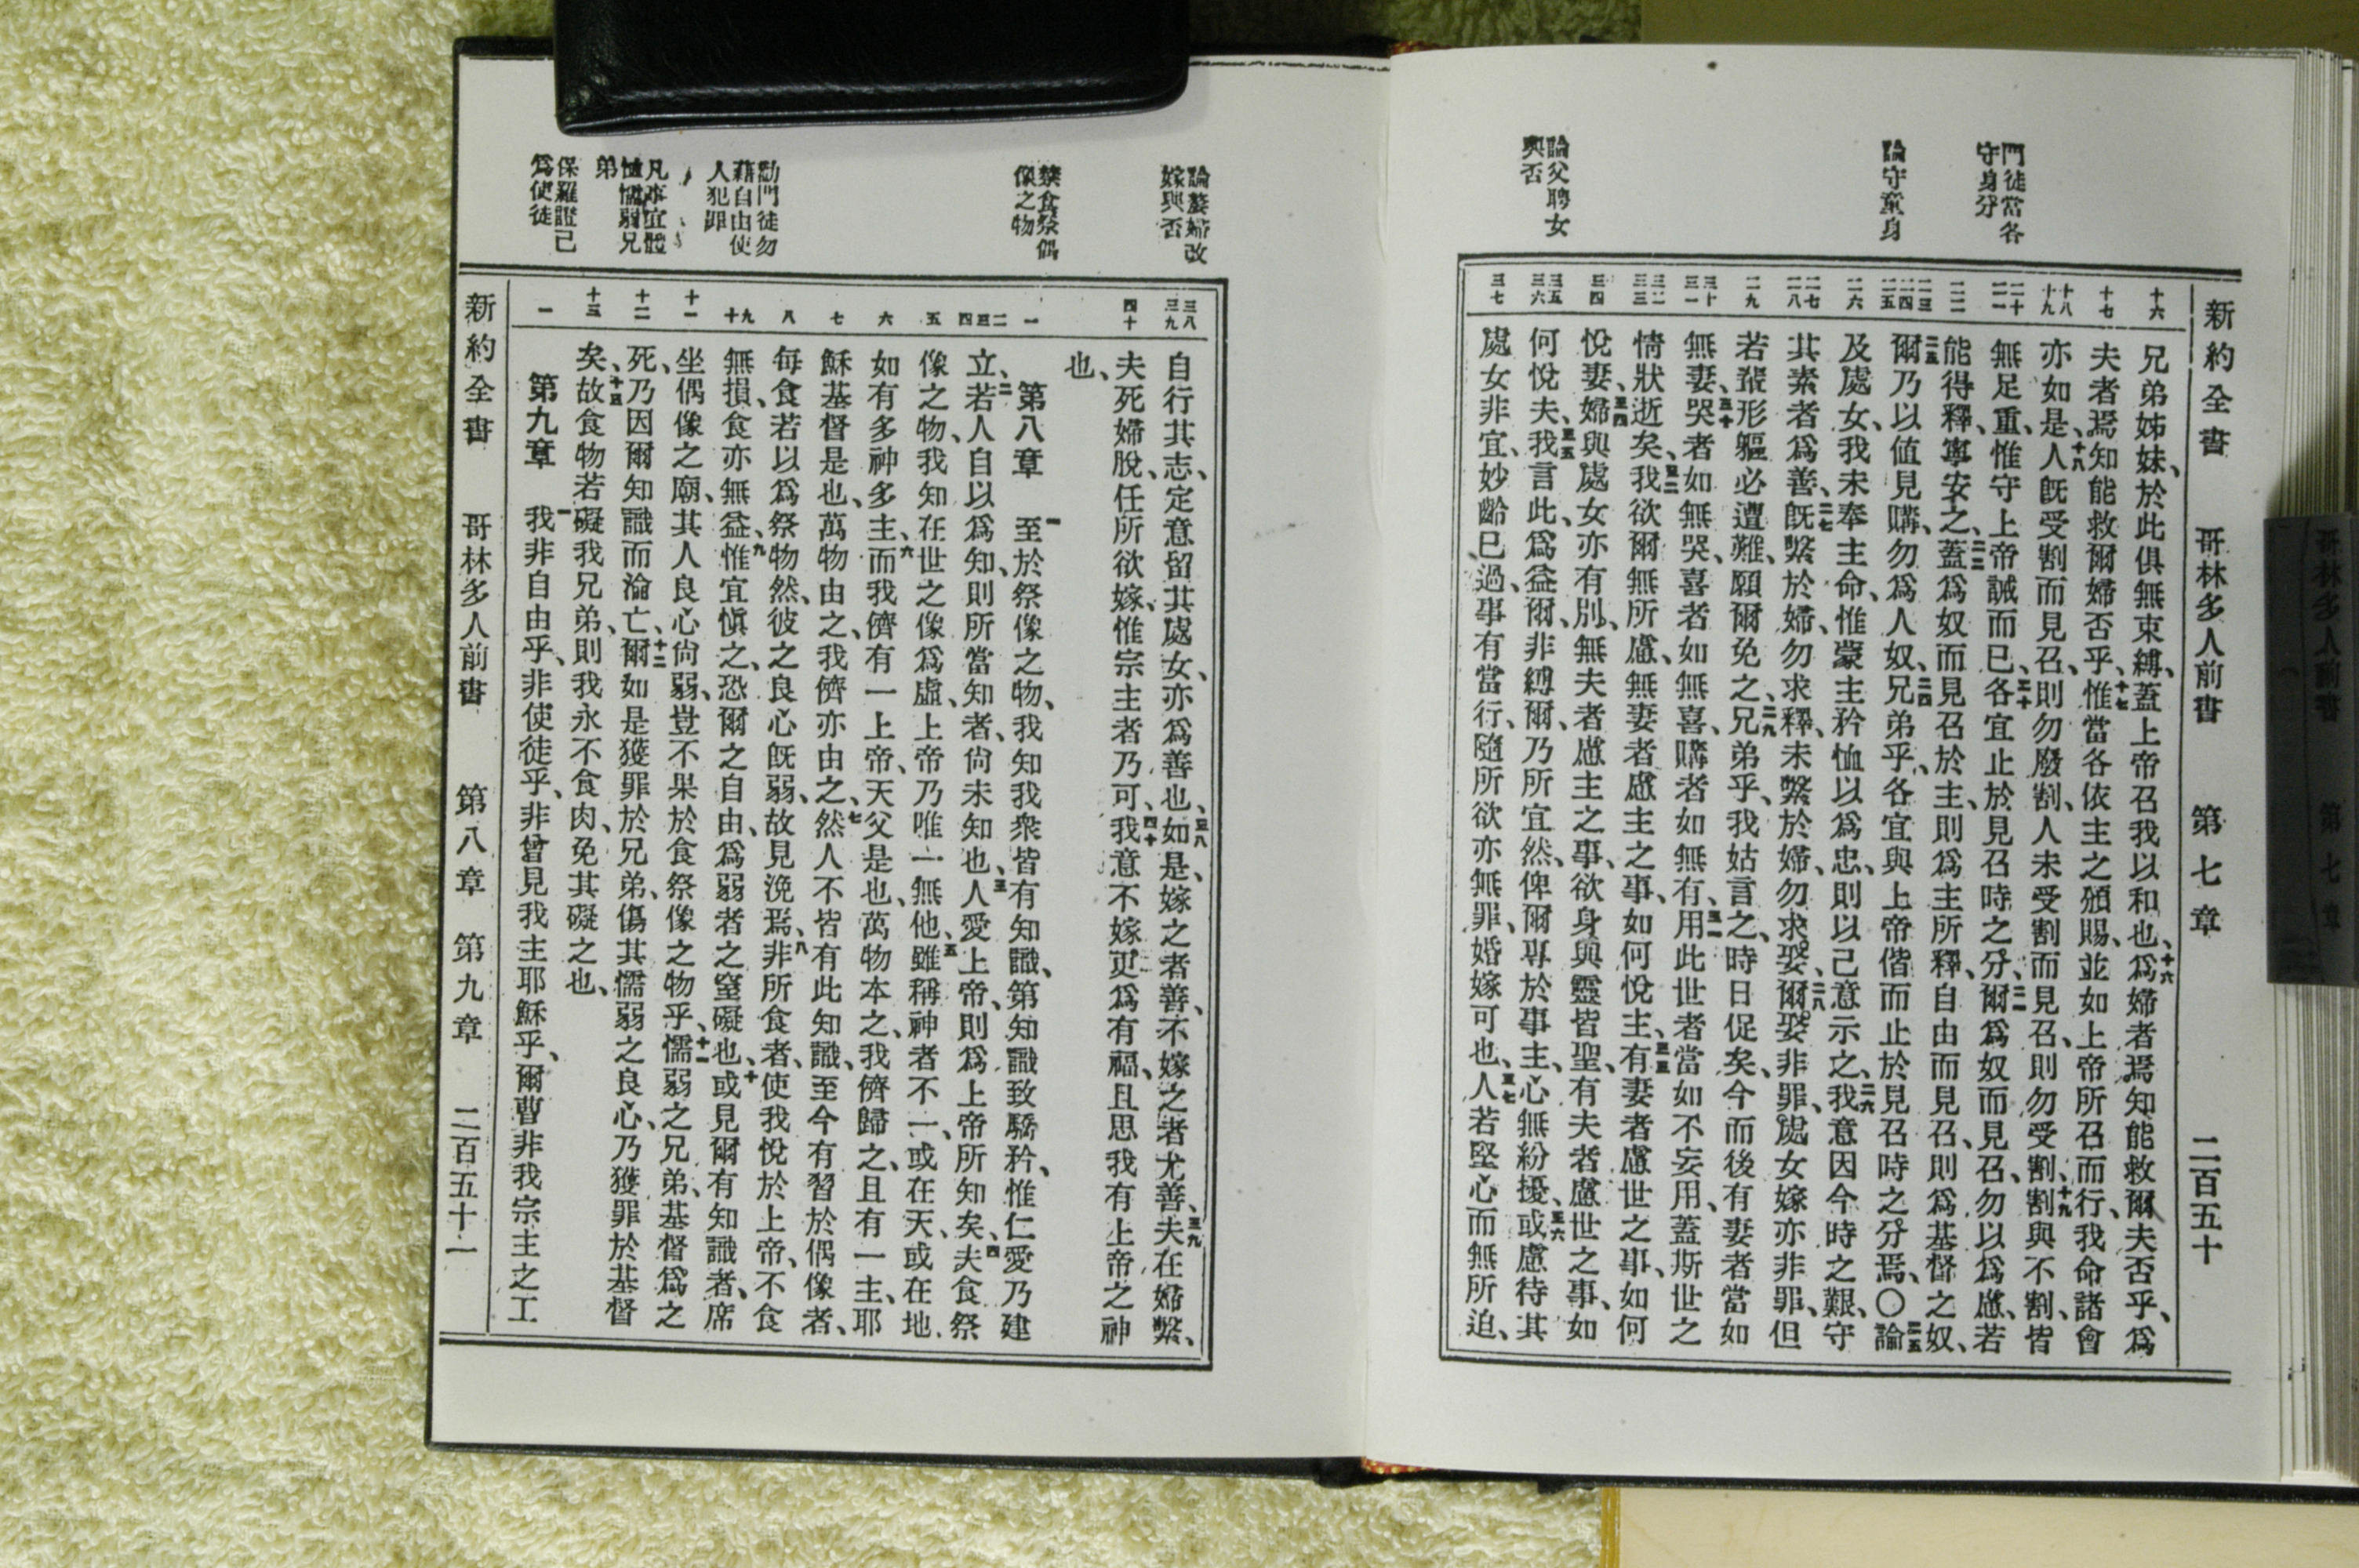 新約全書 哥林多人前書 第七章 二百五十
門徒當各
守身分
論守童身
論父聘女
與否
十六
十七
十八
十九
二十
二一
二二
二三
二四
二五
二六
二七
二八
二九
三十
三一
三二
三三
三四
三五
三六
三七
兄弟姊妹、於此俱無束縛、蓋上帝召我以和也、十六爲婦者焉知能救爾夫否乎、爲
夫者焉知能救爾婦否乎、十七惟當各依主之頒賜、並如上帝所召而行、我命諸會
亦如是、十八人旣受割而見召、則勿廢割、人未受割而見召、則勿受割、十九割與不割、皆
無足重、惟守上帝誡而已、二十各宜止於見召時之分、二一爾爲奴而見召、勿以爲慮、若
能得釋、寧安之、二二蓋爲奴而見召於主、則爲主所釋、自由而見召、則爲基督之奴、
二三爾乃以值見購、勿爲人奴、二四兄弟乎、各宜與上帝偕而止於見召時之分焉、〇二五論
及處女、我未奉主命、惟蒙主矜恤以爲忠、則以己意示之、二六我意因今時之艱、守
其素者爲善、二七旣繫於婦、勿求釋、未繫於婦、勿求娶、二八爾娶非罪、處女嫁亦非罪、但
若輩形軀必遭難、願爾免之、二九兄弟乎、我姑言之、時日促矣、今而後有妻者當如
無妻、三十哭者如無哭、喜者如無喜、購者如無有、三一用此世者當如不妄用、蓋斯世之
情狀逝矣、三二我欲爾無所慮、無妻者慮主之事、如何悅主、三三有妻者慮世之事、如何
悅妻、三四婦與處女亦有別、無夫者慮主之事、欲身與靈皆聖、有夫者慮世之事、如
何悅夫、三五我言此、爲益爾、非縛爾、乃所宜然、俾爾專於事主、心無紛擾、三六或慮待其
處女非宜、妙齡已過、事有當行、隨所欲亦無罪、婚嫁可也、三七人若堅心而無所迫、
論嫠婦改
嫁與否
禁食祭偶
像之物
勸門徒勿
藉自由使
人犯罪
凡事宜體
恤懦弱兄
弟
保羅證己
爲使徒
三八
三九
四十
一
二
三
四
五
六
七
八
九
十
十一
十二
十三
一
自行其志、定意留其處女、亦爲善也、三八如是、嫁之者善、不嫁之者尤善、三九夫在婦繫、
夫死婦脫、任所欲嫁、惟宗主者乃可、四十我意不嫁更爲有福、且思我有上帝之神
也、
第八章 一至於祭像之物、我知我衆皆有知識、第知識致驕矜、惟仁愛乃建
立、二若人自以爲知、則所當知者、尙未知也、三人愛上帝、則爲上帝所知矣、四夫食祭
像之物、我知在世之像爲虛、上帝乃唯一無他、五雖稱神者不一、或在天、或在地、
如有多神多主、六而我儕有一上帝、天父是也、萬物本之、我儕歸之、且有一主、耶
穌基督是也、萬物由之、我儕亦由之、七然人不皆有此知識、至今有習於偶像者、
每食若以爲祭物然、彼之良心旣弱、故見浼焉、八非所食者、使我悅於上帝、不食
無損、食亦無益、九惟宜愼之、恐爾之自由、爲弱者之窒礙也、十或見爾有知識者、席
坐偶像之廟、其人良心尙弱、豈不果於食祭像之物乎、十一懦弱之兄弟、基督爲之
死、乃因爾知識而淪亡、十二爾如是獲罪於兄弟、傷其懦弱之良心、乃獲罪於基督
矣、十三故食物若礙我兄弟、則我永不食肉、免其礙之也、
第九章 一我非自由乎、非使徒乎、非曾見我主耶穌乎、爾曹非我宗主之工
新約全書 哥林多人前書 第八章 第九章 二百五十一